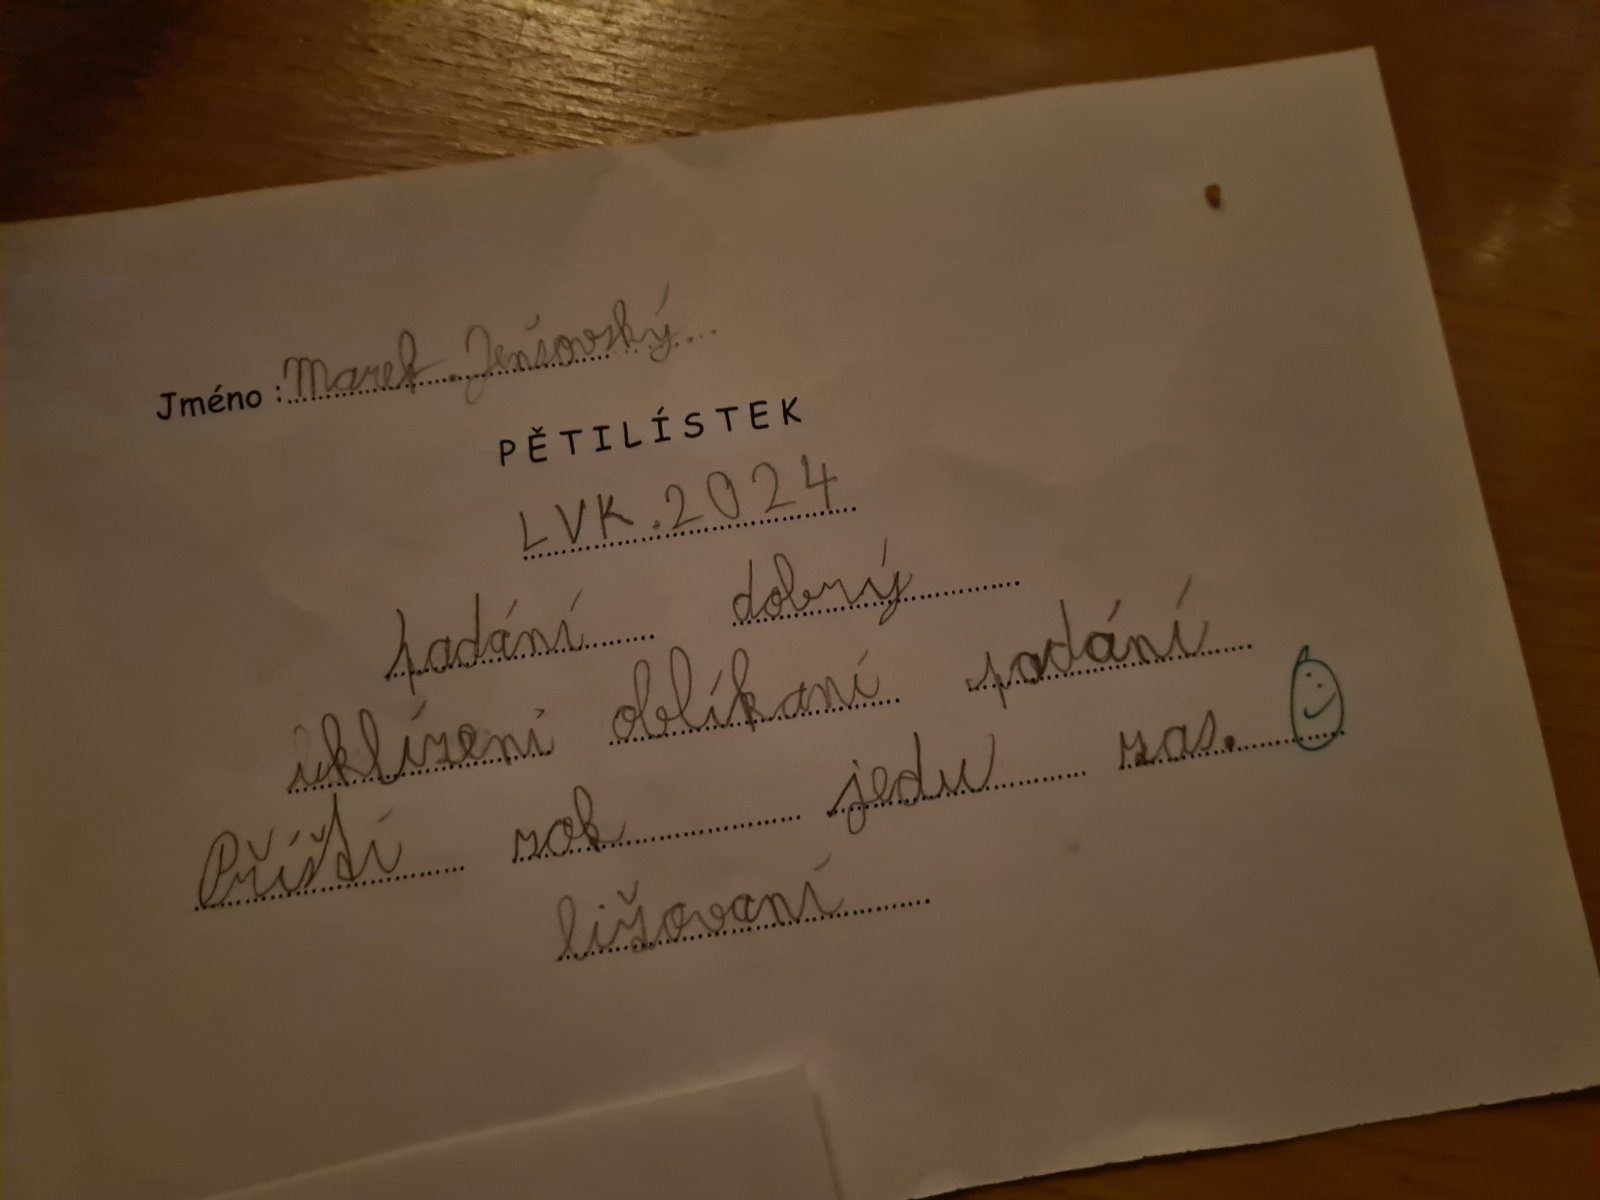 Jméno : Marek Jenšovský
PĚTILÍSTEK
LVK.2024
padání dobrý
uklízení oblíkaní padání
Příští rok jedu zas.
ližovaní